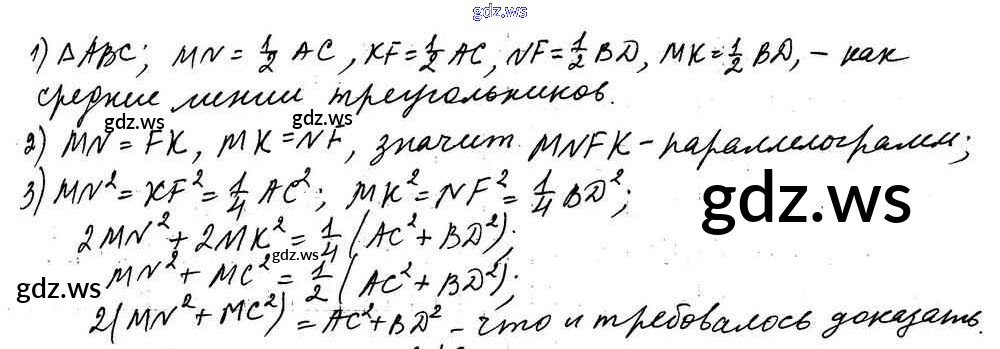 gdz.ws
1) △ABC; MN = 1/2 AC, KF = 1/2 AC, NF = 1/2 BD, MK = 1/2 BD, – как
средние линии треугольников.
gdz.ws gdz.ws
2) MN = FK, MK = NF, значит MNFK – параллелограмм;
3) MN² = KF² = 1/4 AC²; MK² = NF² = 1/4 BD²;
gdz.ws
2MN² + 2MK² = 1/4 (AC² + BD²);
gdz.ws
MN² + MC² = 1/2 (AC² + BD²);
gdz.ws
2(MN² + MC²) = AC² + BD² – что и требовалось доказать.